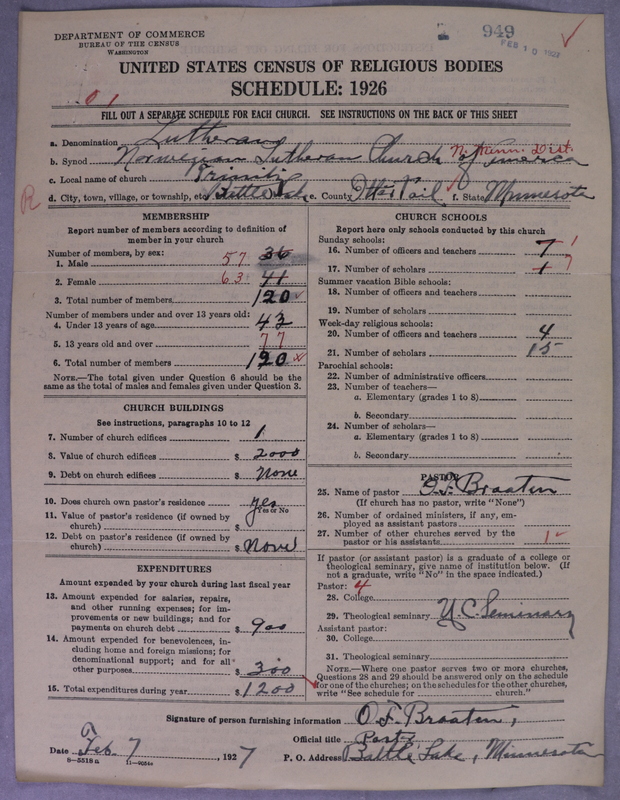 DEPARTMENT OF COMMERCE
BUREAU OF THE CENSUS
WASHINGTON
949
FEB 10 1927
UNITED STATES CENSUS OF RELIGIOUS BODIES
SCHEDULE: 1926
FILL OUT A SEPARATE SCHEDULE FOR EACH CHURCH. SEE INSTRUCTIONS ON THE BACK OF THIS SHEET
a. Denomination Lutheran
b. Synod Norwegian Lutheran Church of America N. Minn. Dist.
c. Local name of church Trinity
d. City, town, village, or township, etc. Battle Lake e. County Otter Tail f. State Minnesota
R
MEMBERSHIP
Report number of members according to definition of member in your church
Number of members, by sex:
1. Male 57 36
2. Female 63 41
3. Total number of members 120
Number of members under and over 13 years old:
4. Under 13 years of age 43
5. 13 years old and over 77
6. Total number of members 120
NOTE.—The total given under Question 6 should be the same as the total of males and females given under Question 3.
CHURCH BUILDINGS
See instructions, paragraphs 10 to 12
7. Number of church edifices 1
8. Value of church edifices $ 2000
9. Debt on church edifices $ None
10. Does church own pastor's residence yes
Yes or No
11. Value of pastor's residence (if owned by church) $
12. Debt on pastor's residence (if owned by church) $ None
EXPENDITURES
Amount expended by your church during last fiscal year
13. Amount expended for salaries, repairs, and other running expenses; for improvements or new buildings; and for payments on church debt $ 900
14. Amount expended for benevolences, including home and foreign missions; for denominational support; and for all other purposes $ 300
15. Total expenditures during year $ 1200
CHURCH SCHOOLS
Report here only schools conducted by this church
Sunday schools:
16. Number of officers and teachers 7 1
17. Number of scholars 1 7
Summer vacation Bible schools:
18. Number of officers and teachers
19. Number of scholars
Week-day religious schools:
20. Number of officers and teachers 4
21. Number of scholars 15
Parochial schools:
22. Number of administrative officers
23. Number of teachers—
a. Elementary (grades 1 to 8)
b. Secondary
24. Number of scholars—
a. Elementary (grades 1 to 8)
b. Secondary
PASTOR
25. Name of pastor O.F. Braaten
(If church has no pastor, write "None")
26. Number of ordained ministers, if any, employed as assistant pastors
27. Number of other churches served by the pastor or his assistants 1
If pastor (or assistant pastor) is a graduate of a college or theological seminary, give name of institution below. (If not a graduate, write "No" in the space indicated.)
Pastor: 4
28. College
29. Theological seminary U.C. Seminary
Assistant pastor:
30. College
31. Theological seminary
NOTE.—Where one pastor serves two or more churches, Questions 28 and 29 should be answered only on the schedule for one of the churches; on the schedules for the other churches, write "See schedule for church."
Signature of person furnishing information O.F. Braaten,
Official title Pastor
Date Feb 7, 1927 P. O. Address Battle Lake, Minnesota
8—5518 a 11—90544